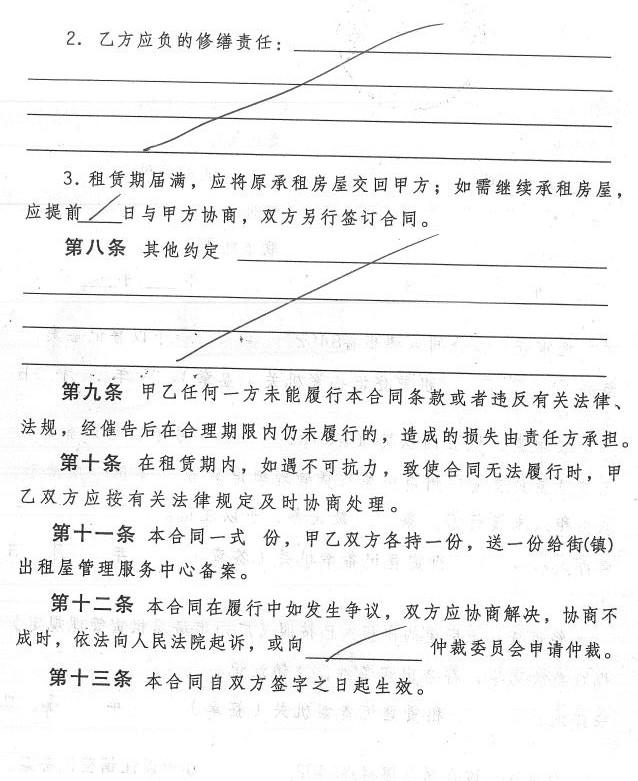 2. 乙方应负的修缮责任:
3. 租赁期届满，应将原承租房屋交回甲方；如需继续承租房屋，
应提前 日与甲方协商，双方另行签订合同。
第八条 其他约定
第九条 甲乙任何一方未能履行本合同条款或者违反有关法律、
法规，经催告后在合理期限内仍未履行的，造成的损失由责任方承担。
第十条 在租赁期内，如遇不可抗力，致使合同无法履行时，甲
乙双方应按有关法律规定及时协商处理。
第十一条 本合同一式 份，甲乙双方各持一份，送一份给街(镇)
出租屋管理服务中心备案。
第十二条 本合同在履行中如发生争议，双方应协商解决，协商不
成时，依法向人民法院起诉，或向 仲裁委员会申请仲裁。
第十三条 本合同自双方签字之日起生效。